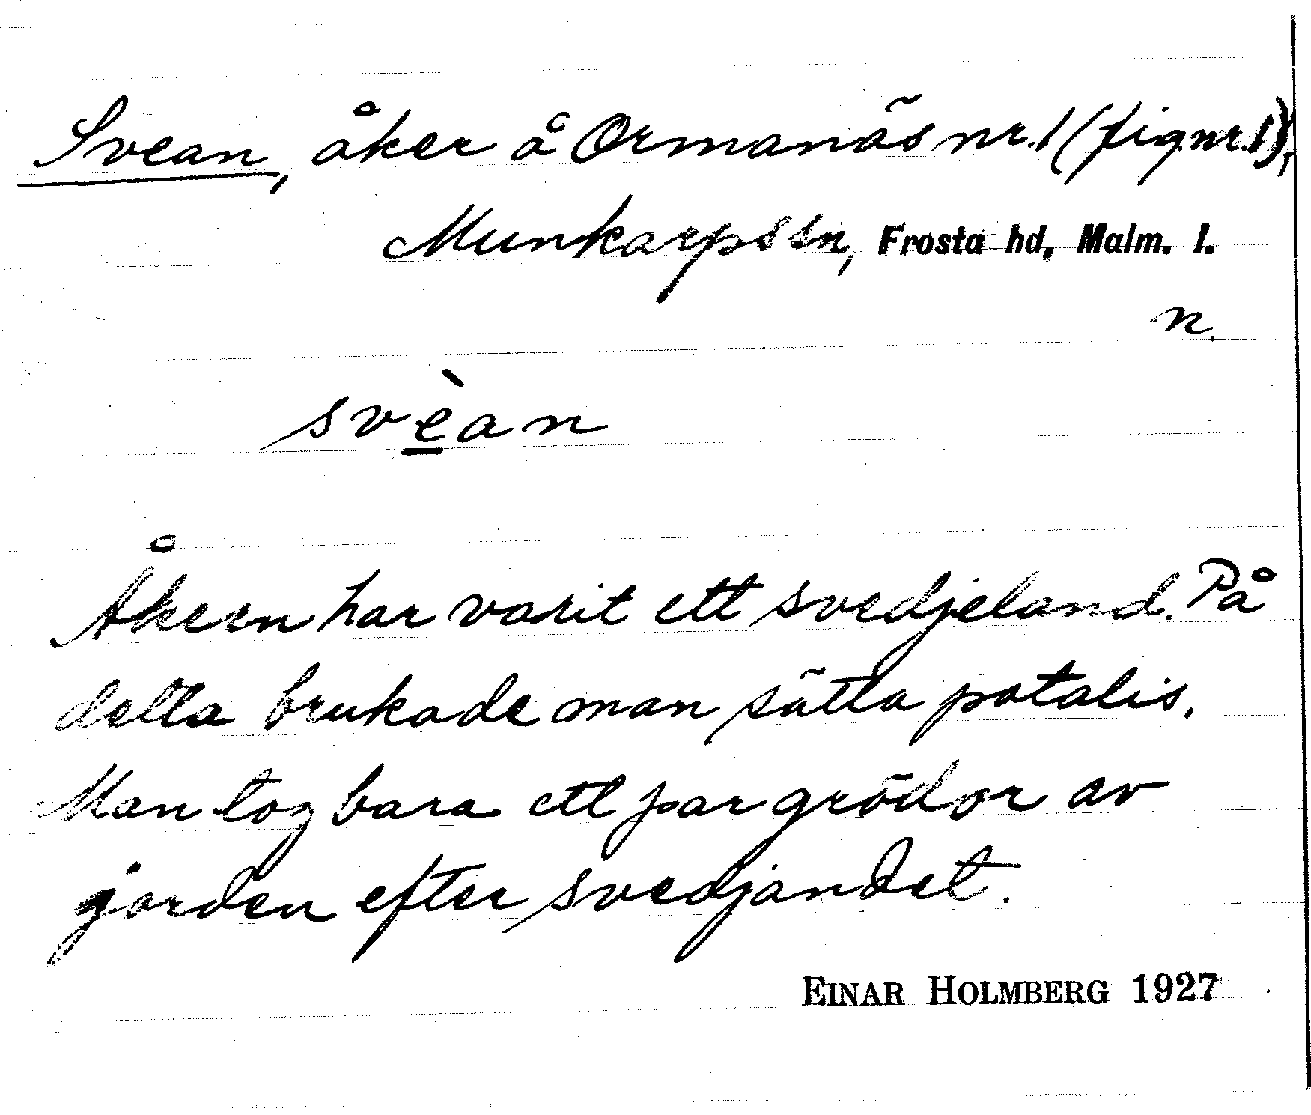 Svean, åker å Ormanäs nr.1 (fig.nr.1),
Munkarps sn, Frosta hd, Malm. l.
n.
svèan
Åkern har varit ett svedjeland. På
detta brukade man sätta potatis.
Man tog bara ett par grödor av
jorden efter svedjandet.
EINAR HOLMBERG 1927